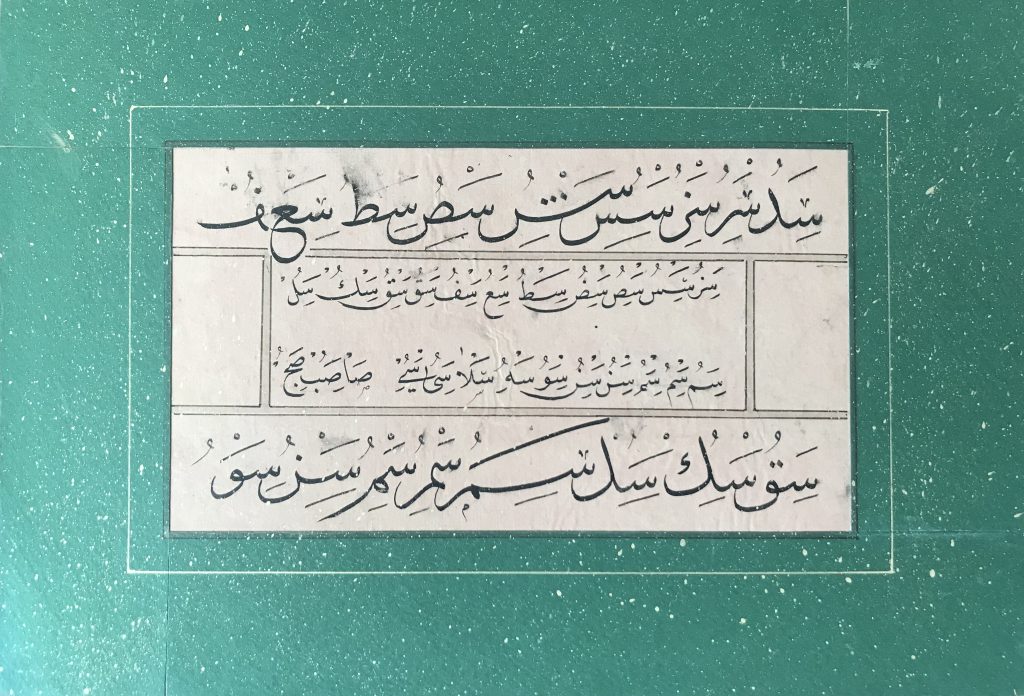 سد سر سر سس سس سص سط سع ف
سر سس سص سص سط سع سف سق سق سك سل
سم سم سم سن سن سو سه سلا سى سے صا صب صح
سق سك سل سم سم سم سن سو